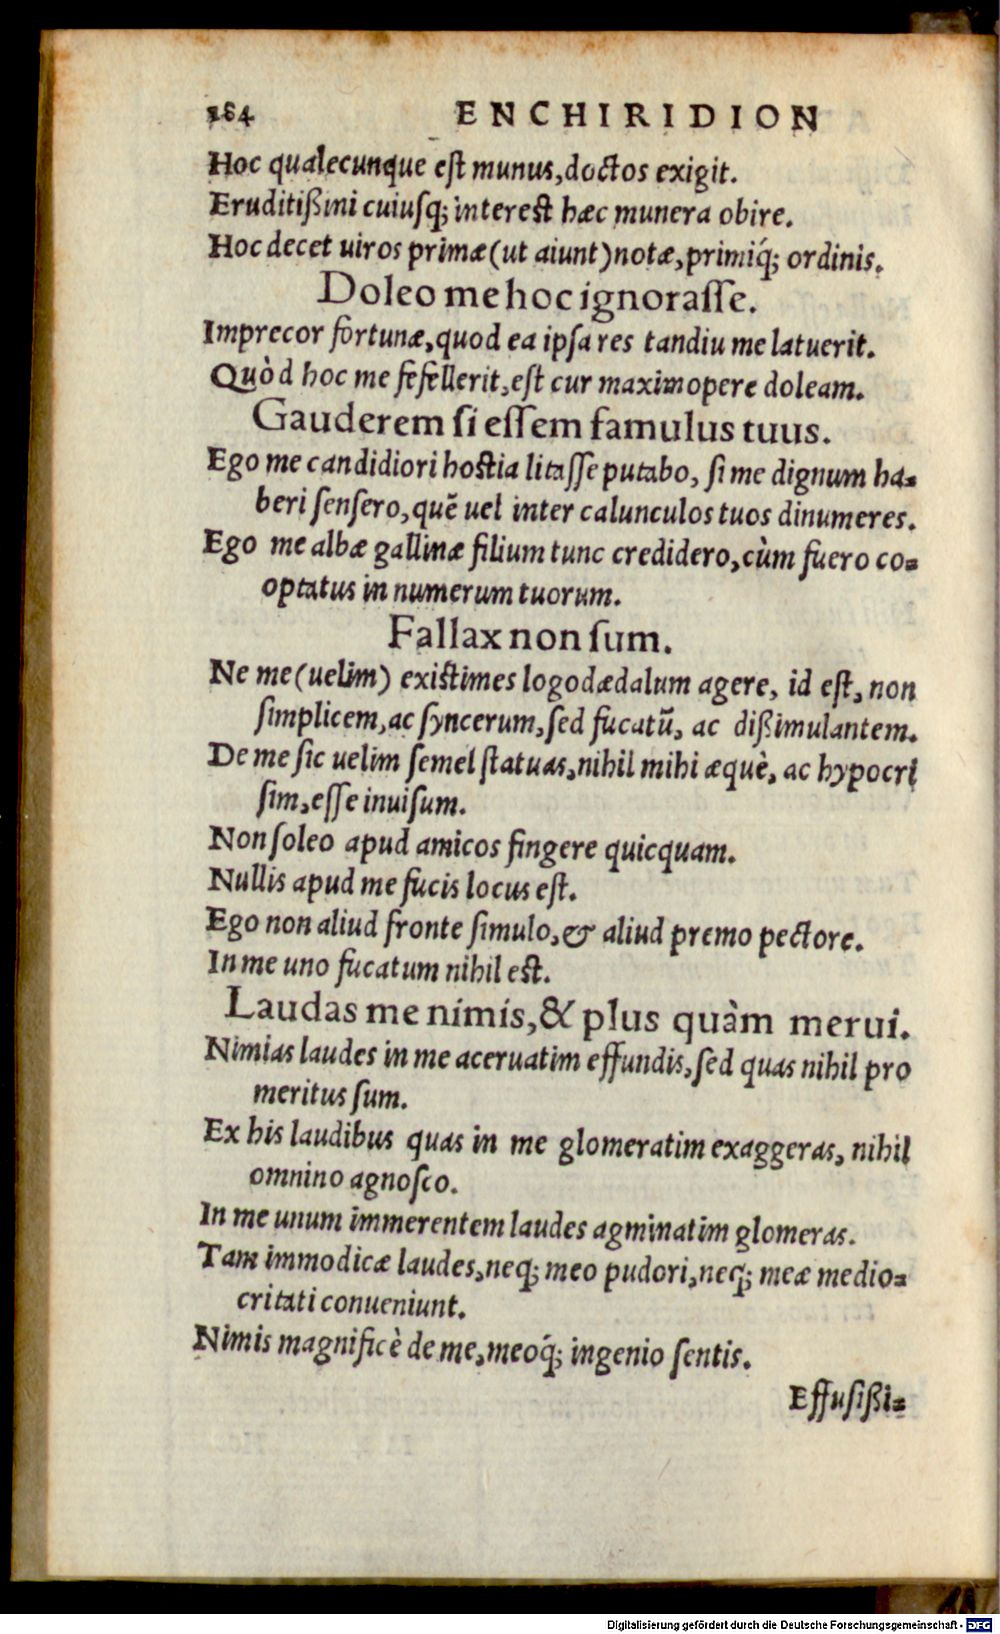 184 ENCHIRIDION
Hoc qualecunque eſt munus, doctos exigit.
Eruditißimi cuiuſq; intereſt hæc munera obire.
Hoc decet uiros primæ (ut aiunt) notæ, primiq́; ordinis.
Doleo me hoc ignoraſſe.
Imprecor fortunæ, quod ea ipſa res tandiu me latuerit.
Quòd hoc me fefellerit, eſt cur maximopere doleam.
Gauderem ſi eſſem famulus tuus.
Ego me candidiori hoſtia litaſſe putabo, ſi me dignum ha-
beri ſenſero, quē uel inter calunculos tuos dinumeres.
Ego me albæ gallinæ filium tunc credidero, cùm fuero co-
optatus in numerum tuorum.
Fallax non ſum.
Ne me (uelim) exiſtimes logodædalum agere, id eſt, non
ſimplicem, ac ſyncerum, ſed fucatū, ac dißimulantem.
De me ſic uelim ſemel ſtatuas, nihil mihi æquè, ac hypocri
ſim, eſſe inuiſum.
Non ſoleo apud amicos fingere quicquam.
Nullis apud me fucis locus eſt.
Ego non aliud fronte ſimulo, & aliud premo pectore.
In me uno fucatum nihil eſt.
Laudas me nimis, & plus quàm merui.
Nimias laudes in me aceruatim effundis, ſed quas nihil pro
meritus ſum.
Ex his laudibus quas in me glomeratim exaggeras, nihil
omnino agnoſco.
In me unum immerentem laudes agminatim glomeras.
Tam immodicæ laudes, neq; meo pudori, neq; meæ medio-
critati conueniunt.
Nimis magnificè de me, meoq́; ingenio ſentis.
Effuſißi-
Digitalisierung gefördert durch die Deutsche Forschungsgemeinschaft - DFG